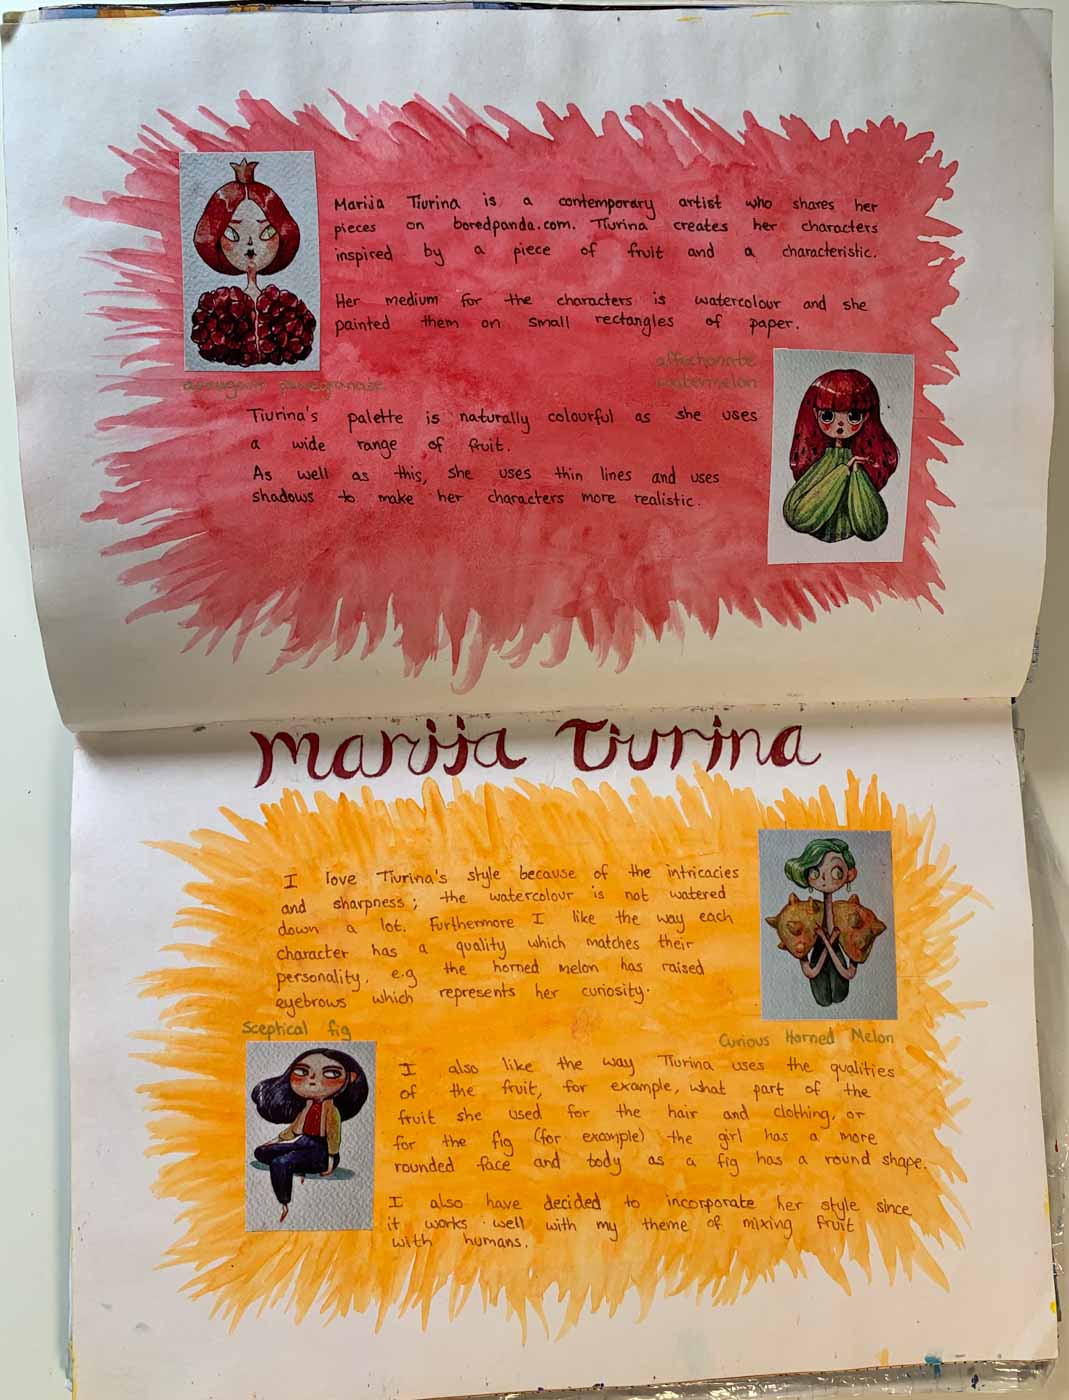 Mariia Tiurina is a contemporary artist who shares her
pieces on boredpanda.com. Tiurina creates her characters
inspired by a piece of fruit and a characteristic.
Her medium for the characters is watercolour and she
painted them on small rectangles of paper.
affectionate
watermelon
pomegranate
Tiurina's palette is naturally colourful as she uses
a wide range of fruit.
As well as this, she uses thin lines and uses
shadows to make her characters more realistic.
Marija Tiurina
I love Tiurina's style because of the intricacies
and sharpness; the watercolour is not watered
down a lot. Furthermore I like the way each
character has a quality which matches their
personality. e.g the horned melon has raised
eyebrows which represents her curiosity.
Sceptical fig
Curious Horned Melon
I also like the way Tiurina uses the qualities
of the fruit, for example, what part of the
fruit she used for the hair and clothing, or
for the fig (for example) the girl has a more
rounded face and body as a fig has a round shape.
I also have decided to incorporate her style since
it works well with my theme of mixing fruit
with humans.